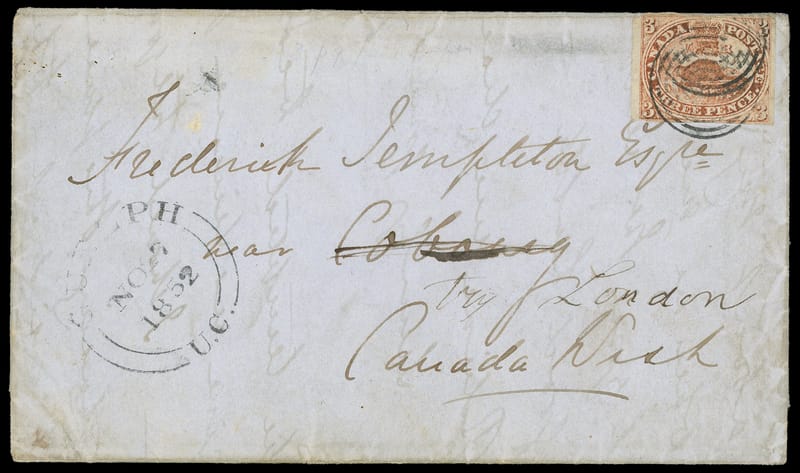 3 CANADA POSTAGE 3
3 THREE PENCE 3
Frederick Templeton Esqre
near Cobourg
try London
Canada West
GUELPH
NO 7
1852
U.C.